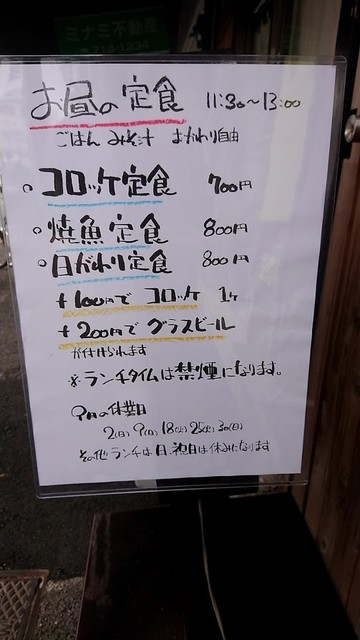 ミナミ不動産
お昼の定食 11:30〜13:00
ごはん みそ汁 おかわり自由
コロッケ定食 700円
焼魚定食 800円
日がわり定食 800円
+100円で コロッケ 1ヶ
+200円で グラスビール
が付けられます
※ランチタイムは禁煙になります。
9月の休業日
2(日) 9(日) 18(火) 25(火) 30(日)
その他ランチは日、祝日は休みになります